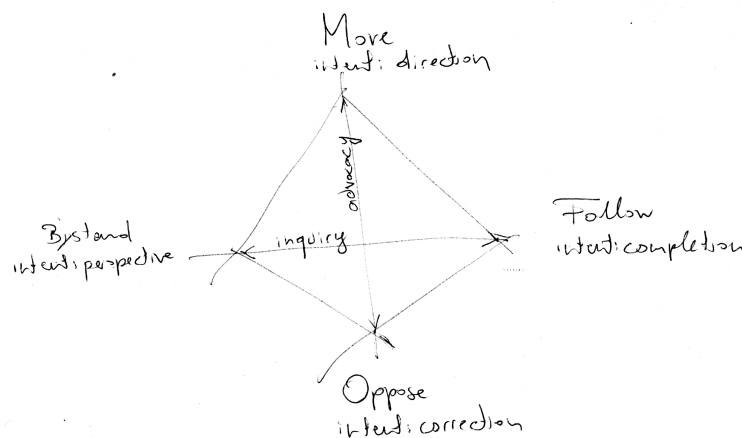 Move
intent: direction
advocacy
Bystand
intent: perspective
inquiry
Follow
intent: completion
Oppose
intent: correction